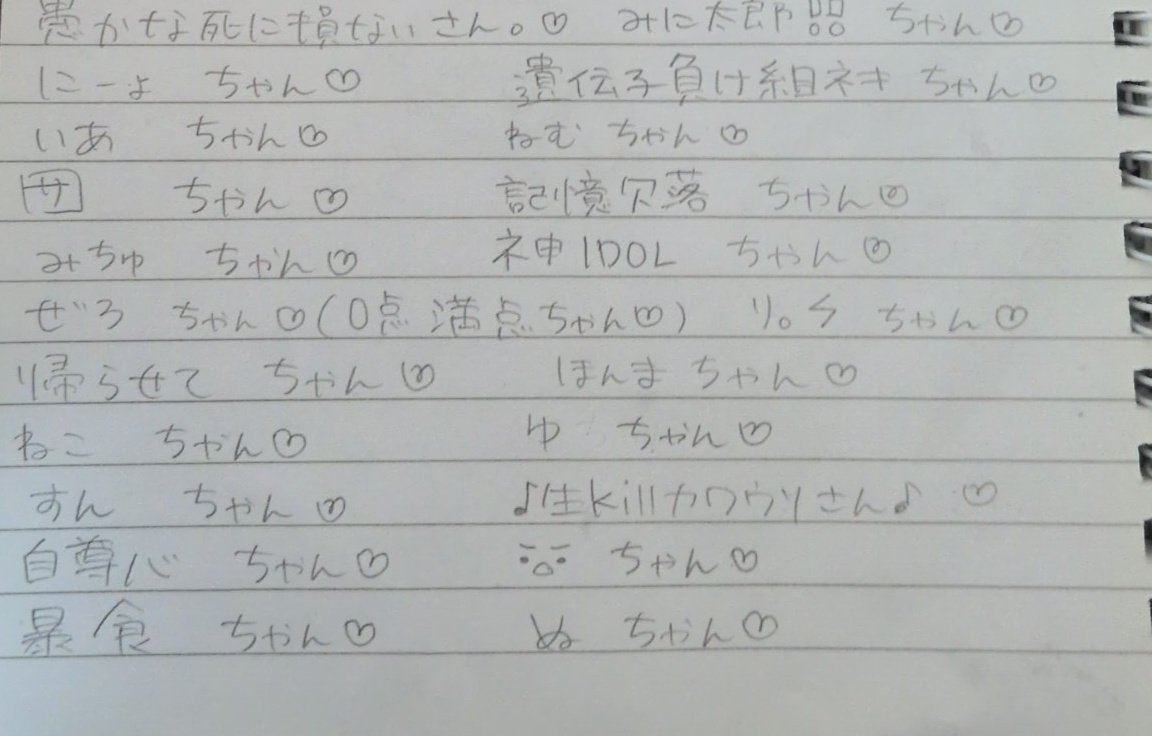 愚かな死に損ないさん。♡ みに太郎 ちゃん♡
にーょ ちゃん♡ 遺伝子負け組ネキ ちゃん♡
いあ ちゃん♡ ねむ ちゃん♡
サ ちゃん♡ 記憶欠落 ちゃん♡
みちゅ ちゃん♡ ネ申IDOL ちゃん♡
ぜろ ちゃん♡(0点満点ちゃん♡) り。ち ちゃん♡
帰らせて ちゃん♡ ほんま ちゃん♡
ねこ ちゃん♡ ゆ ちゃん♡
すん ちゃん♡ ♪生killカワウソさん♪ ♡
自尊心 ちゃん♡ ちゃん♡
暴食 ちゃん♡ ぬ ちゃん♡